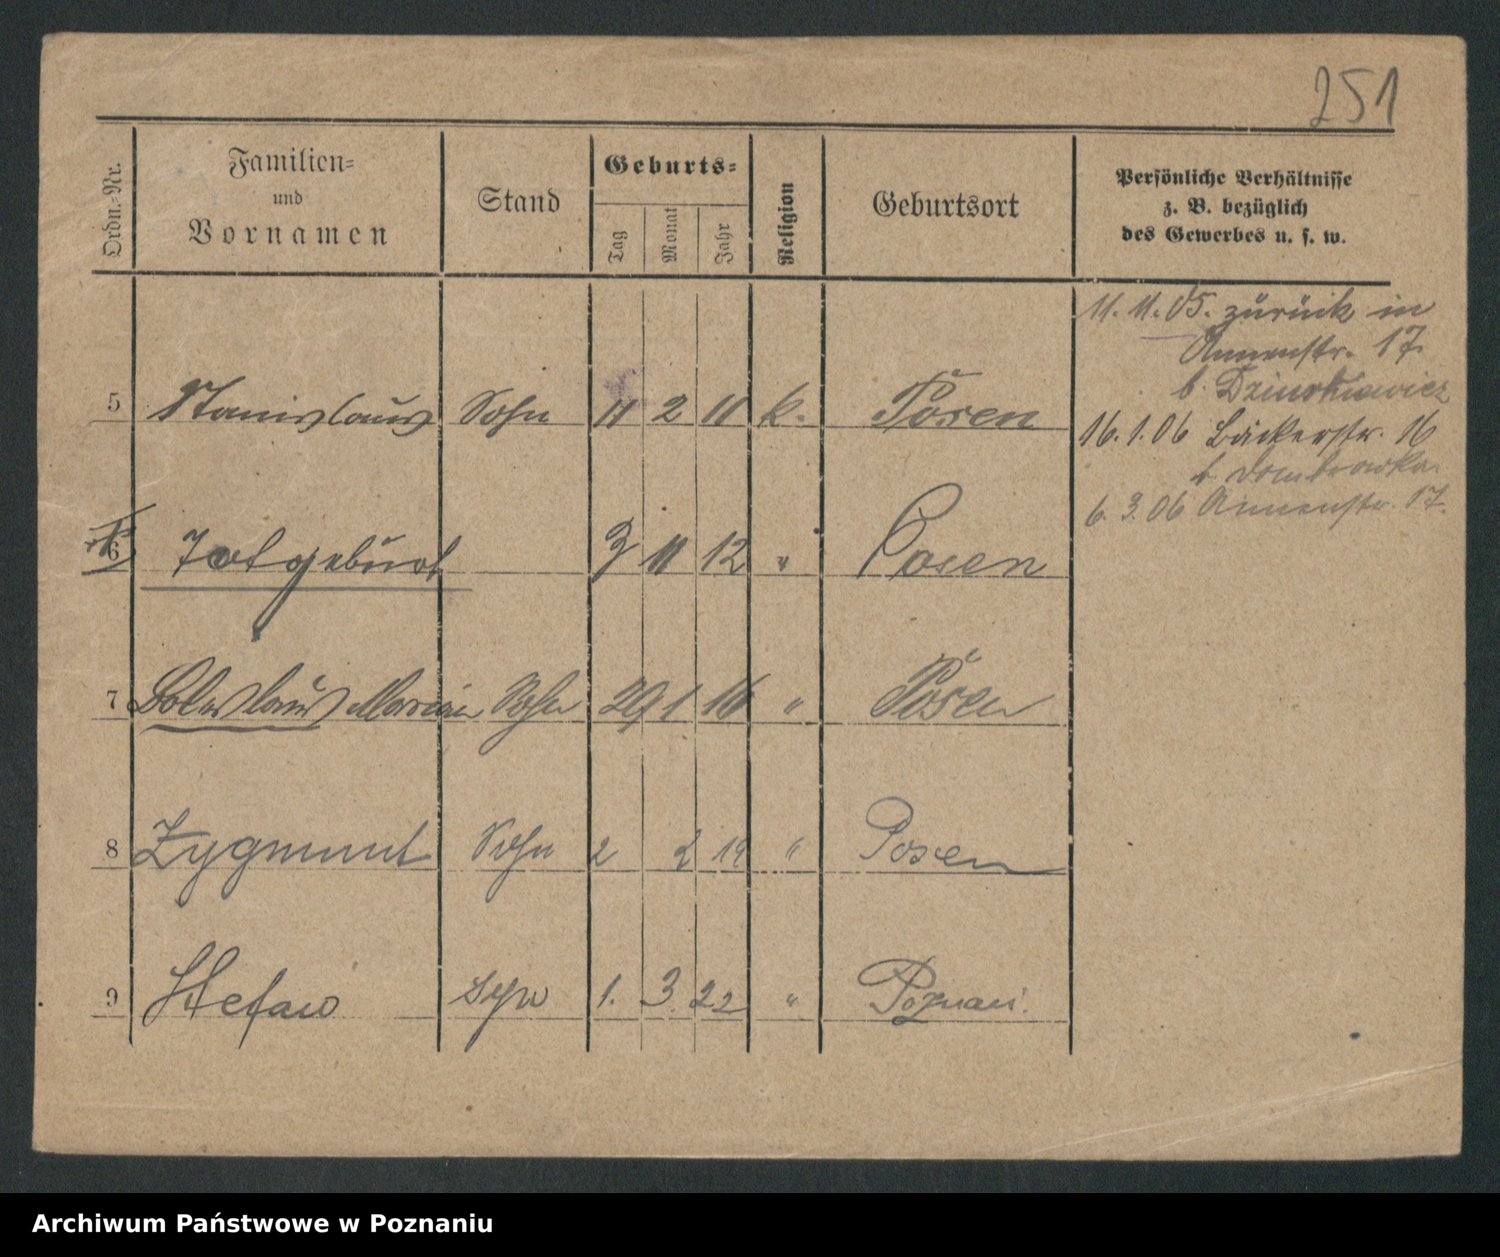 251
Ordn.-Nr.
Familien-
und
Vornamen
Stand
Geburts-
Tag
Monat
Jahr
Religion
Geburtsort
Persönliche Verhältnisse
z. B. bezüglich
des Gewerbes u. s. w.
11. 11. 05. zurück in
Annenstr. 17.
b. Dzinskiewicz
16. 1. 06 Bäckerstr. 16
b. Dombrowska.
6. 3. 06 Annenstr. 17.
5 Stanislaus Sohn 11 2 11 k. Posen
6 Totgeburt 3 11 12 " Posen
7 Boleslaus Marian Sohn 29 1 16 " Posen
8 Zygmunt Sohn 2 2 19 " Posen
9 Stefan syn 1. 3. 22 " Poznań.
Archiwum Państwowe w Poznaniu